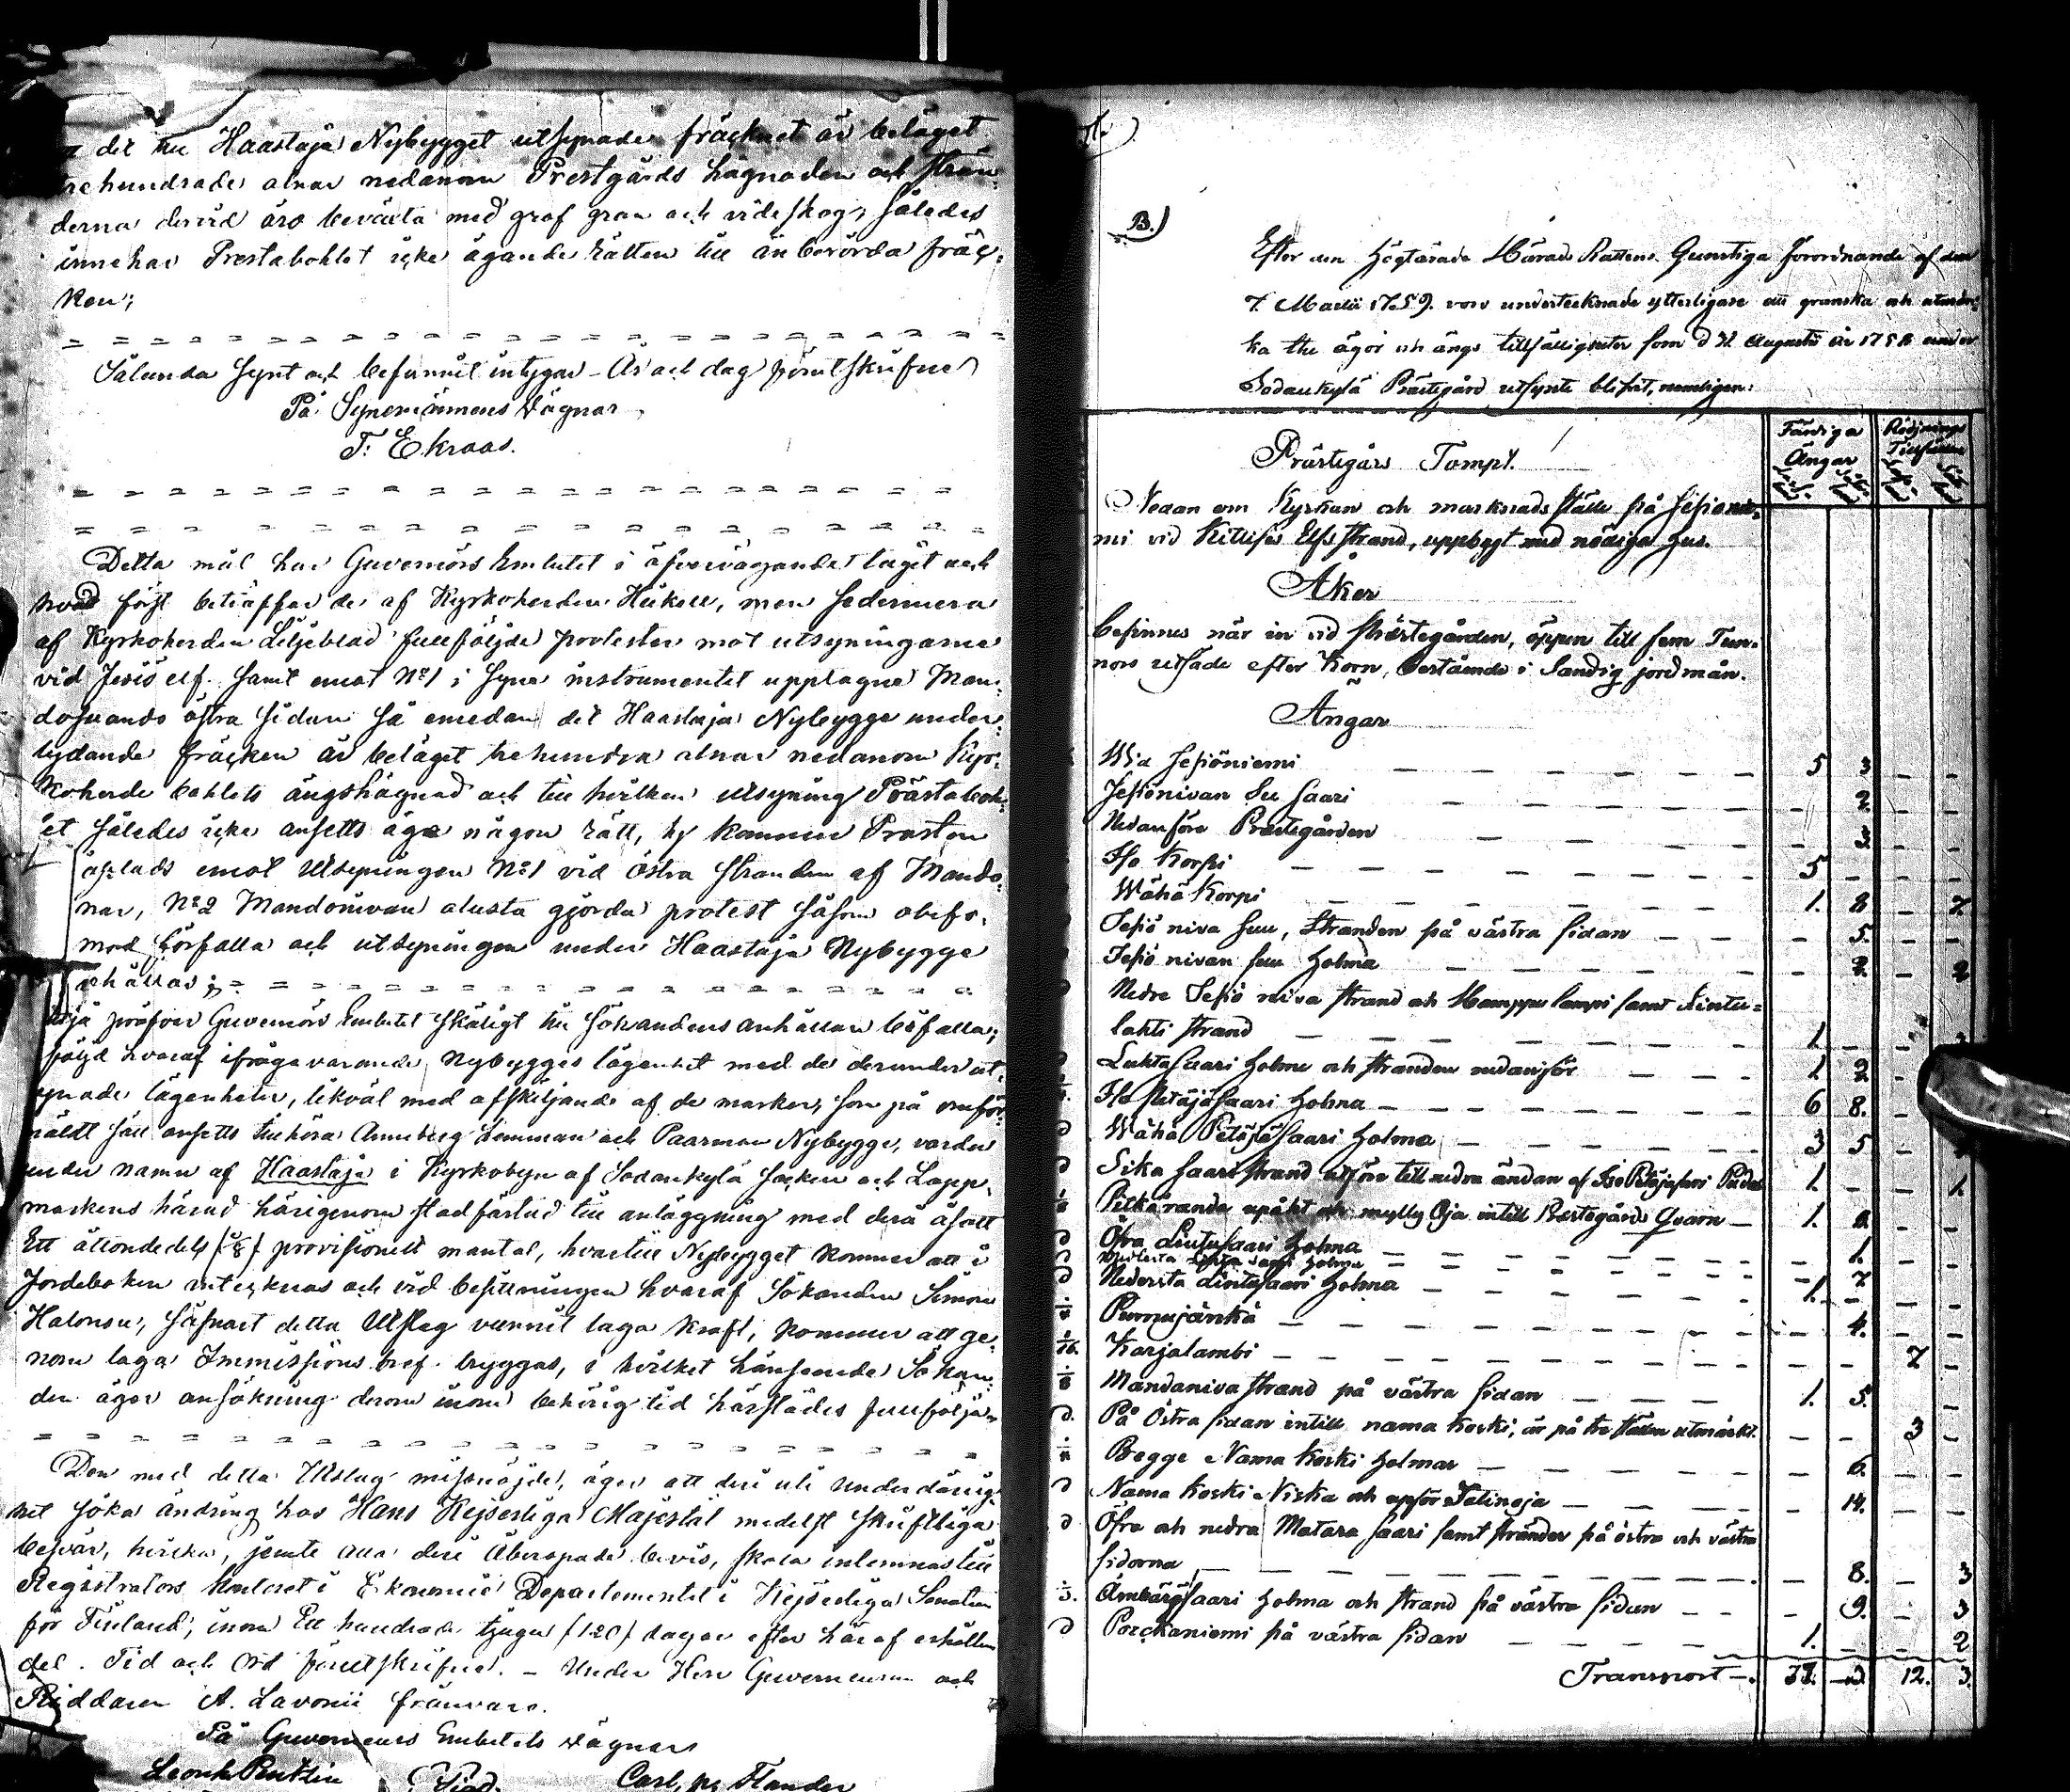 det till Haastaja Nybygget utsynade fräcknet är beläget
trehundrade alnar nedanom Prestgårds hägnaden och strän-
derna dervid äro beväxta med graf gran och videskog, således
innehar Prestabohlet icke ägande rätten till än berörda fräc-
ken;
Sålunda synt och befunnit intygar - År och dag förutskrifne
På Synemännens vägnar
J. Ekraas.
Detta mål har Guvernörs Embetet i öfvervägande tagit och
hvad först beträffar de af Kyrkoherden Heikell, men sedermera
af Kyrkoherden Liljeblad fullföljde protester mot utsyningarne
vid Jesiö elf samt emot No 1 i Syne instrumentet upptagne Man-
dosuando östra sidan så emedan det Haastaja Nybygge under-
lydande fräcken är beläget trehundra alnar nedanom Kyr-
koherde bohlets ängshägnad och till hvilken utsyning Prästaboh-
et således icke ansetts äga någon rätt, ty kommer Prosten
åstads emot Utsyningen No 1 vid Östra stranden af Mando-
nar, No 2 Mandonivan alusta gjorda protest såsom obefo-
gad förfalla och utsyningen under Haastaja Nybygge
behållas;
pröfvar Guvernörs Embetet skäligt till Sökandens anhållan bifalla;
följd hvaraf ifrågavarande Nybygges lägenhet med de derunder ut-
synade lägenheter, likväl med afskiljande af de marker, som på omför-
mäldt sätt ansetts tillhöra Anneberg Lemman och Paarman Nybygge, varder
under namn af Haastaja i Kyrkobyn af Sodankylä Socken och Lapp-
markens härad härigenom stadfästad till anläggning med derå åsatt
Ett åttondedels (1/8) provisionelt mantal, hvartill Nybygget kommer att i
Jordeboken antecknas och vid besittningen hvaraf Sökanden Simon
Halonen, såsnart detta Utslag vunnit laga kraft, kommer att ge-
nom laga Immissions bref tryggas, i hvilket hänseende Sökan-
den äger ansökning derom inom behörig tid härstädes fullfölja
Den med detta Utslag missnöjde, äger att deri uti underdånig-
het söka ändring hos Hans Kejserliga Majestät medelst skriftliga
besvär, hvilka, jemte alla deri Åberopade bevis, skola inlemnas till
Registrators Kontoret i Ekonomie Departementet i Kejserliga Senaten
för Finland, inom Ett hundrade tjugu (120) dagar efter häraf erhållen
del. Tid och Ord förutskrifne. - Under Herr Guverneuren och
Riddaren A. Lavonii frånvaro.
På Guverneurs Embetets vägnar
Carl Flander
B.)
Efter den Högtärade Härads Rättens Gunstiga förordnande af den
7. Martii 1759. voro undertecknade ytterligare att granska och utmär-
ka the ägor och ängs tillfälligheter som d. Augusti år 1758 under
Sodankylä Prästegård utsynte blifvit, nemligen:
Färdiga Ängar
Rödjnings Tillfällen
Prästegårds Tompt.
Nedan om Kyrkan och marknads ställe på Jesiönie-
mi vid Kittilä Elfs strand, uppbygt med nödiga hus.
Åker
befinnes när in vid Prästegården, öppen till fem Tun-
nors utsäde efter Korn, bestående i Sandig jordmån.
Ängar
Wid Jesiöniemi 5 3 - -
Jesiönivan Suu Saari - 2. - -
Nedanföre Prästegården - 3. - -
Iso Korpi 5 - - -
Wähä Korpi 1. 2 - 7.
Jesiö niva suu, Stranden på västra sidan - 5. - -
Jesiö nivan suu Holma - 2 - 2
Nedre Jesiö niva strand och Hamppu lampi samt Lintu-
lahti strand 1.
Luhta Saari Holme och stranden nedanför 1. 2 -
Iso Petäjä Saari Holma 6 8. -
Wähä Petäjä Saari Holma 3 5 -
Sika Saari strand utföre till nedra ändan af Iso Petäjäsaari 1. - - 1.
Pitkäranda upåt och mylly Oja intill Prästegårds Qvarn 1. 2. - -
Öfra Lintusaari Holma - 1. - -
Medlersta Lintu saari Holma - 7 - -
Nedersta Lintusaari Holma 1. - - -
Purnujänkä - 4. - -
Karjalambi - - 7 -
Mandaniva strand på västra sidan 1. 5. - -
På Östra sidan intill nama koski, är på tre ställen utmärkt. - - 3 -
Begge Nama Koski Holmar - 6. - -
Nama Koski Niska och upför Jatinoja - 14. - -
Öfra och nedra Matara Saari samt stränder på östra och västra
sidorna - 8. - 3
Saari Holma och strand på västra sidan - 9. - 3
Porckaniemi på västra sidan 1. - - 2
Transport 12. 3.